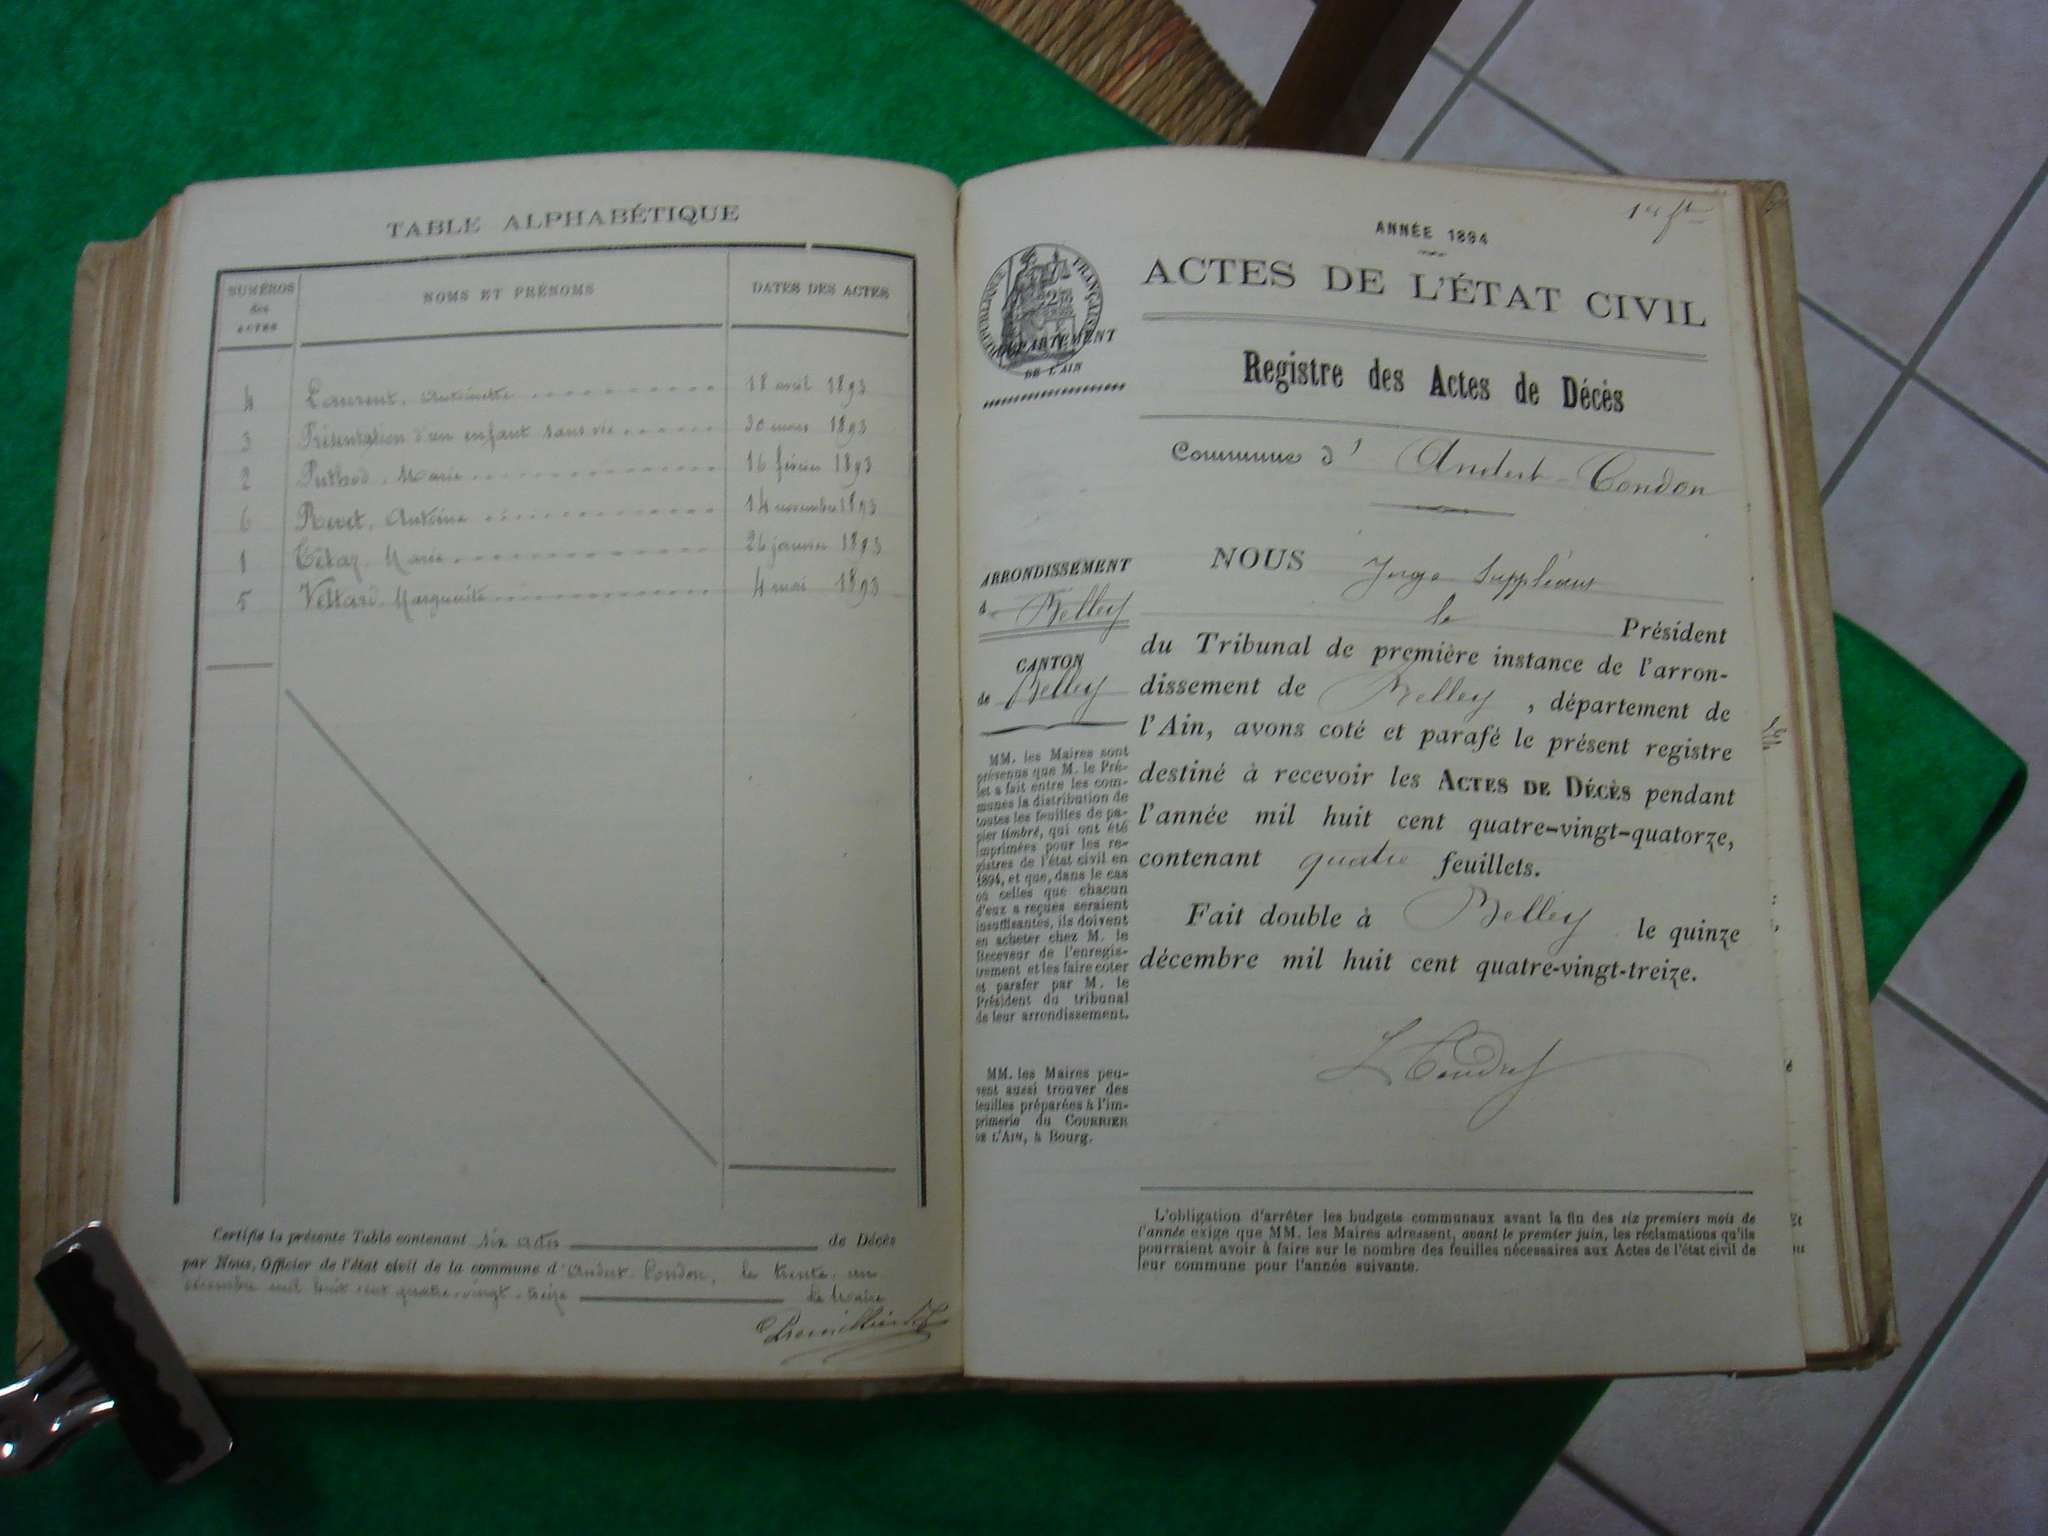 TABLE ALPHABÉTIQUE
NUMÉROS des ACTES
NOMS ET PRÉNOMS
DATES DES ACTES
4 Laurent, Antoinette 18 avril 1893
3 Présentation d'un enfant sans vie 30 mars 1893
2 Puthod, Marie 16 février 1893
6 Revet, Antoine 14 novembre 1893
1 Marie 26 janvier 1893
5 Marguerite 4 mai 1893
Certifié la présente Table contenant six actes de Décès
par Nous, Officier de l'état civil de la commune d'Andert-Condon, le trente-un
décembre mil huit cent quatre-vingt-treize le Maire
ANNÉE 1894
ACTES DE L'ÉTAT CIVIL
RÉPUBLIQUE FRANÇAISE
DÉPARTEMENT
DE L'AIN
Registre des Actes de Décès
Commune d' Andert-Condon
ARRONDISSEMENT
de Belley
CANTON
de Belley
MM. les Maires sont
prévenus que M. le Pré-
fet a fait entre les com-
munes la distribution de
toutes les feuilles de pa-
pier timbré, qui ont été
imprimées pour les re-
gistres de l'état civil en
1894, et que, dans le cas
où celles que chacun
d'eux a reçues seraient
insuffisantes, ils doivent
en acheter chez M. le
Receveur de l'enregis-
trement et les faire coter
et parafer par M. le
Président du tribunal
de leur arrondissement.
MM. les Maires peu-
vent aussi trouver des
feuilles préparées à l'im-
primerie du COURRIER
DE L'AIN, à Bourg.
NOUS Juge Suppléant
le Président
du Tribunal de première instance de l'arron-
dissement de Belley, département de
l'Ain, avons coté et parafé le présent registre
destiné à recevoir les ACTES DE DÉCÈS pendant
l'année mil huit cent quatre-vingt-quatorze,
contenant quatre feuillets.
Fait double à Belley le quinze
décembre mil huit cent quatre-vingt-treize.
L'obligation d'arrêter les budgets communaux avant la fin des six premiers mois de
l'année exige que MM. les Maires adressent, avant le premier juin, les réclamations qu'ils
pourraient avoir à faire sur le nombre des feuilles nécessaires aux Actes de l'état civil de
leur commune pour l'année suivante.